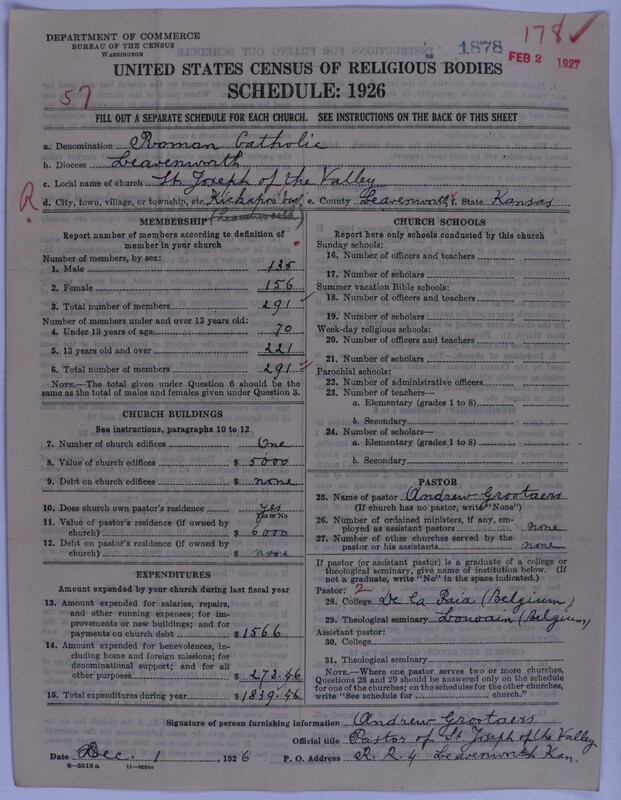 178 ✓
DEPARTMENT OF COMMERCE
BUREAU OF THE CENSUS
WASHINGTON
1878
FEB 2 1927
UNITED STATES CENSUS OF RELIGIOUS BODIES
57
SCHEDULE: 1926
FILL OUT A SEPARATE SCHEDULE FOR EACH CHURCH. SEE INSTRUCTIONS ON THE BACK OF THIS SHEET
a. Denomination Roman Catholic
b. Diocese Leavenworth
c. Local name of church St Joseph of the Valley
R
d. City, town, village, or township, etc. Kickapoo twp. e. County Leavenworth f. State Kansas
(Leavenworth)
MEMBERSHIP
Report number of members according to definition of member in your church
Number of members, by sex:
1. Male 135
2. Female 156
3. Total number of members 291
Number of members under and over 13 years old:
4. Under 13 years of age 70
5. 13 years old and over 221
6. Total number of members 291
NOTE.—The total given under Question 6 should be the
same as the total of males and females given under Question 3.
CHURCH BUILDINGS
See instructions, paragraphs 10 to 12
7. Number of church edifices One
8. Value of church edifices $ 5000
9. Debt on church edifices $ none
10. Does church own pastor's residence yes
Yes or No
11. Value of pastor's residence (if owned by
church) $ 6000
12. Debt on pastor's residence (if owned by
church) $ none
EXPENDITURES
Amount expended by your church during last fiscal year
13. Amount expended for salaries, repairs,
and other running expenses; for im-
provements or new buildings; and for
payments on church debt $ 1566
14. Amount expended for benevolences, in-
cluding home and foreign missions; for
denominational support; and for all
other purposes $ 273.46
15. Total expenditures during year $ 1839.46
CHURCH SCHOOLS
Report here only schools conducted by this church
Sunday schools:
16. Number of officers and teachers
17. Number of scholars
Summer vacation Bible schools:
18. Number of officers and teachers
19. Number of scholars
Week-day religious schools:
20. Number of officers and teachers
21. Number of scholars
Parochial schools:
22. Number of administrative officers
23. Number of teachers—
a. Elementary (grades 1 to 8)
b. Secondary
24. Number of scholars—
a. Elementary (grades 1 to 8)
b. Secondary
PASTOR
25. Name of pastor Andrew Grootaers
(If church has no pastor, write "None")
26. Number of ordained ministers, if any, em-
ployed as assistant pastors none
27. Number of other churches served by the
pastor or his assistants none
If pastor (or assistant pastor) is a graduate of a college or
theological seminary, give name of institution below. (If
not a graduate, write "No" in the space indicated.)
Pastor: 2
28. College De la Paix (Belgium)
29. Theological seminary Louvain (Belgium)
Assistant pastor:
30. College
31. Theological seminary
NOTE.—Where one pastor serves two or more churches,
Questions 28 and 29 should be answered only on the schedule
for one of the churches; on the schedules for the other churches,
write "See schedule for church."
Signature of person furnishing information Andrew Grootaers
Official title Pastor of St Joseph of the Valley
Date Dec. 1, 1926 P. O. Address R. R. 4 Leavenworth Kan.